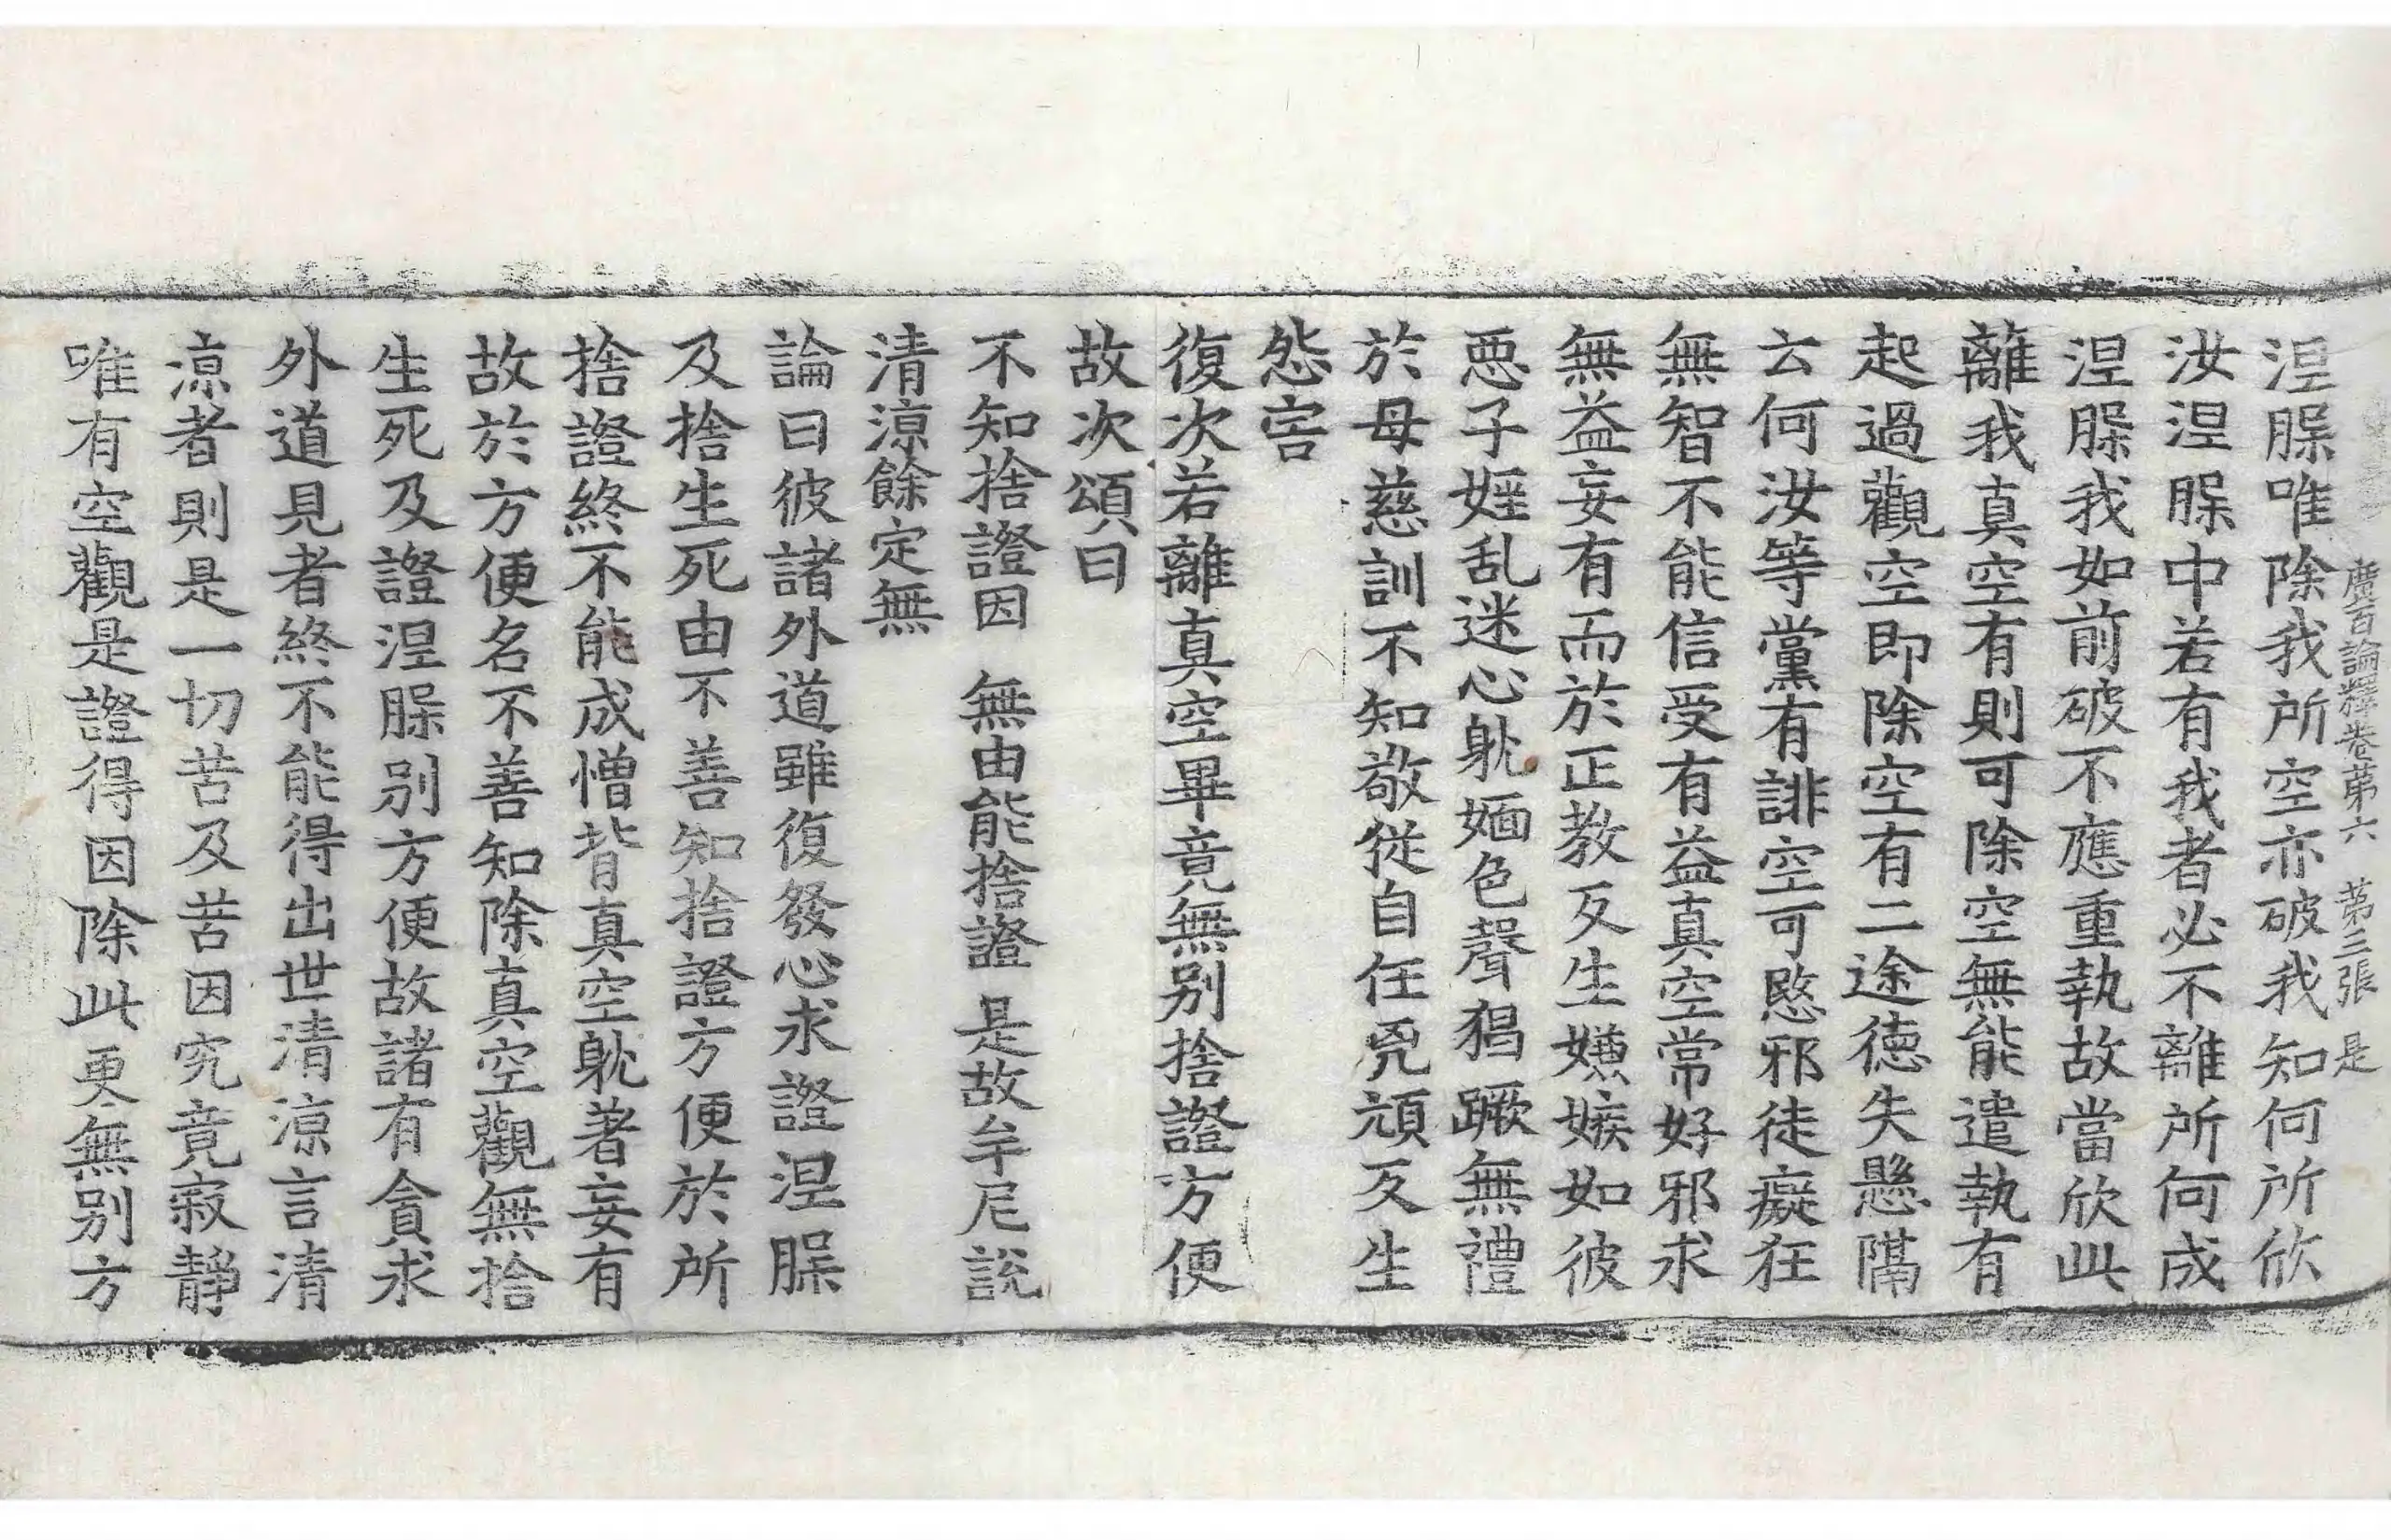 廣百論釋卷第六　第三張　是
涅槃唯除我所空亦破我知何所欣
汝涅槃中若有我者必不離所何成
涅槃我如前破不應重執故當欣此
離我真空有則可除空無能遣執有
起過觀空即除空有二途德失懸隔
云何汝等黨有誹空可愍邪徒癡狂
無智不能信受有益真空常好邪求
無益妄有而於正教反生嫌嫉如彼
惡子婬乱迷心躭媔色聲猖蹶無禮
於母慈訓不知敬從自任兇頑反生
怨害
復次若離真空畢竟無別捨證方便
故次頌曰
不知捨證因　無由能捨證　是故牟尼說
清涼餘定無
論曰彼諸外道雖復發心求證涅槃
及捨生死由不善知捨證方便於所
捨證終不能成憎背真空躭著妄有
故於方便名不善知除真空觀無捨
生死及證涅槃別方便故諸有貪求
外道見者終不能得出世清涼言清
涼者則是一切苦及苦因究竟寂靜
唯有空觀是證得因除此更無別方